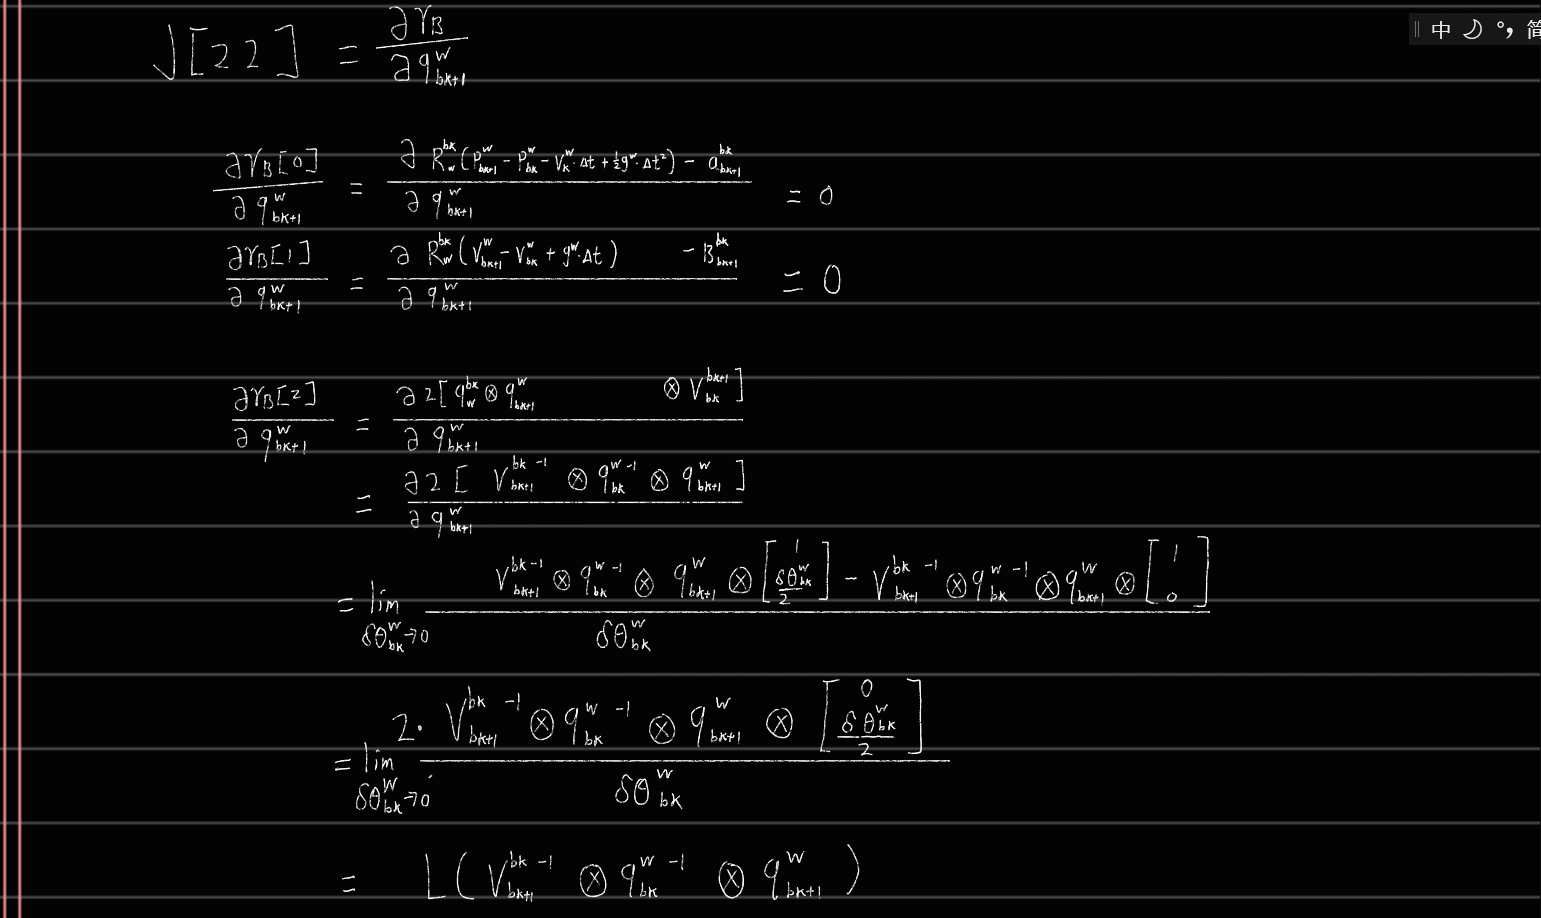 中 °, 简
J[22] = ∂γ_B / ∂q^w_{bk+1}
∂γ_B[0] / ∂q^w_{bk+1} = ∂ R^{bk}_w (P^w_{bk+1} - P^w_{bk} - V^w_k · Δt + ½ g^w · Δt²) - α^{bk}_{bk+1} / ∂q^w_{bk+1} = 0
∂γ_B[1] / ∂q^w_{bk+1} = ∂ R^{bk}_w (V^w_{bk+1} - V^w_{bk} + g^w · Δt) - B^{bk}_{bk+1} / ∂q^w_{bk+1} = 0
∂γ_B[2] / ∂q^w_{bk+1} = ∂ 2[ q^{bk}_w ⊗ q^w_{bk+1} ⊗ V^{bk+1}_{bk} ] / ∂q^w_{bk+1}
= ∂ 2 [ V^{bk -1}_{bk+1} ⊗ q^{w -1}_{bk} ⊗ q^w_{bk+1} ] / ∂q^w_{bk+1}
= lim_{δθ^w_{bk}→0} V^{bk -1}_{bk+1} ⊗ q^{w -1}_{bk} ⊗ q^w_{bk+1} ⊗ [1, δθ^w_{bk}/2] - V^{bk -1}_{bk+1} ⊗ q^{w -1}_{bk} ⊗ q^w_{bk+1} ⊗ [1, 0] / δθ^w_{bk}
= lim_{δθ^w_{bk}→0} 2 · V^{bk -1}_{bk+1} ⊗ q^{w -1}_{bk} ⊗ q^w_{bk+1} ⊗ [0, δθ^w_{bk}/2] / δθ^w_{bk}
= L( V^{bk -1}_{bk+1} ⊗ q^{w -1}_{bk} ⊗ q^w_{bk+1} )